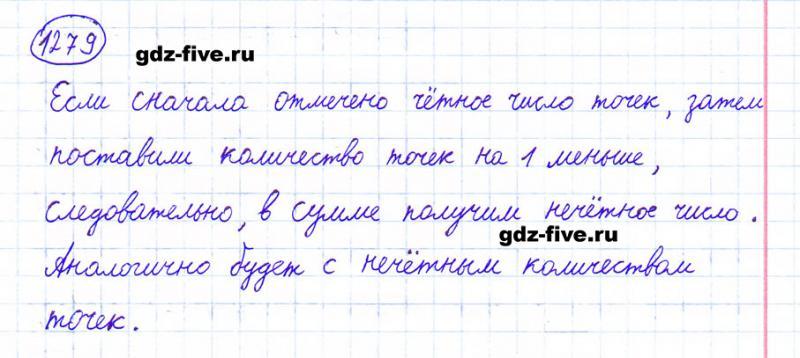 1279
gdz-five.ru
Если сначала отмечено чётное число точек, затем
поставили количество точек на 1 меньше,
следовательно, в сумме получим нечётное число.
gdz-five.ru
Аналогично будет с нечётным количеством
точек.